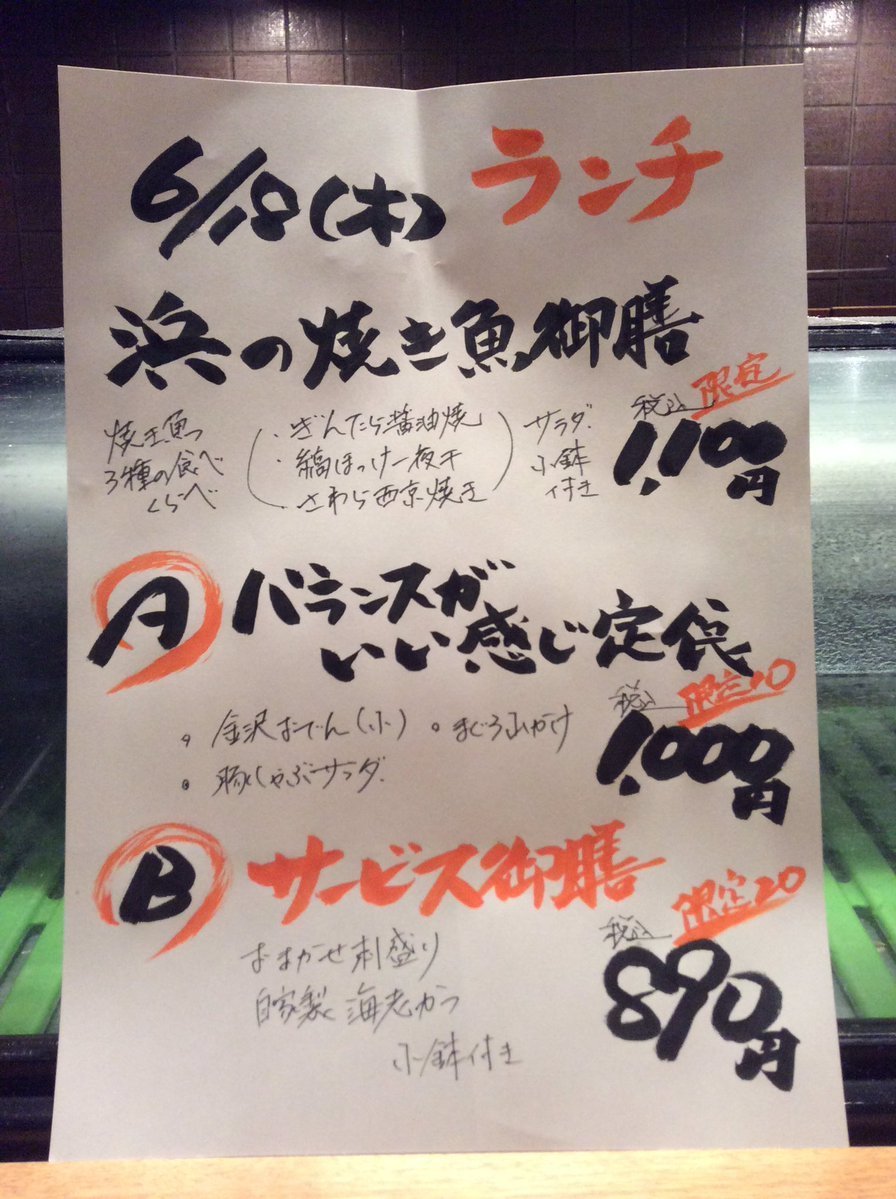 6/18(木) ランチ
浜の焼き魚御膳
焼き魚
3種の食べ
くらべ
・ぎんだら醤油焼
・縞ほっけ一夜干
・さわら西京焼き
サラダ
小鉢
付き
税込 限定
1,100円
A バランスが
いい感じ定食
・金沢おでん(小) ・まぐろ山かけ
・豚しゃぶサラダ
税込 限定10
1,000円
B サービス御膳
おまかせ刺盛り
自家製海老かつ
小鉢付き
税込 限定20
890円